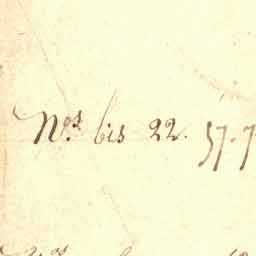 Nos. bis 22. 57.7